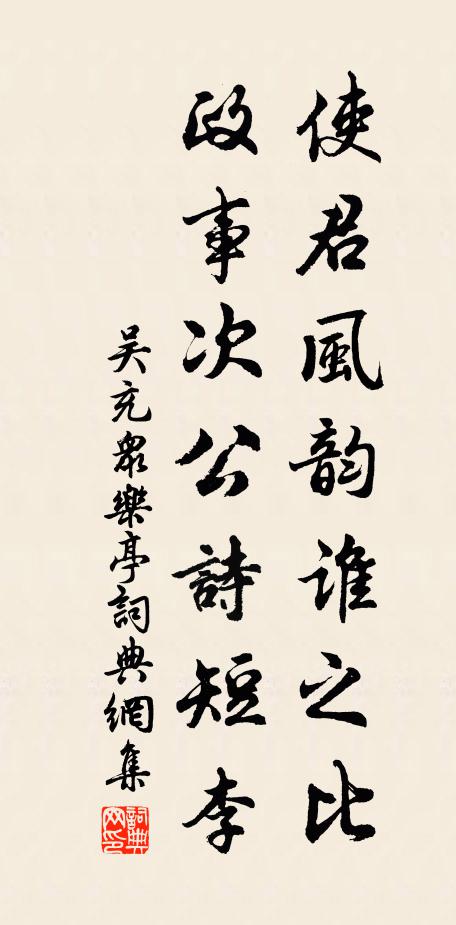 使君風韵誰之比
政事次公詩短李
吴充衆樂亭詞典網集
詞典網印